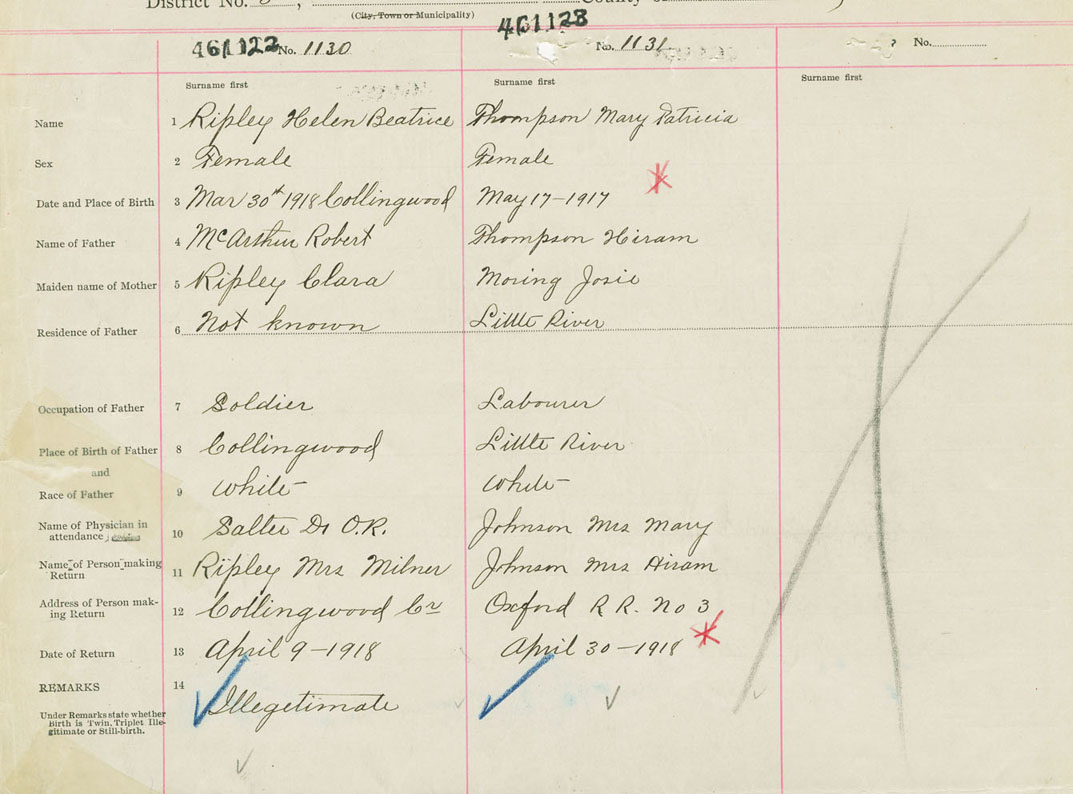 District No.
(City, Town or Municipality)
461122 No. 1130
461123 No. 1131
No.
Surname first
Surname first
Surname first
Name 1 Ripley Helen Beatrice Thompson Mary Patricia
Sex 2 Female Female
Date and Place of Birth 3 Mar 30th 1918 Collingwood May 17-1917
Name of Father 4 McArthur Robert Thompson Hiram
Maiden name of Mother 5 Ripley Clara Moring Josie
Residence of Father 6 Not known Little River
Occupation of Father 7 Soldier Labourer
Place of Birth of Father 8 Collingwood Little River
and
Race of Father 9 White White
Name of Physician in
attendance 10 Salter Dr O.R. Johnson Mrs Mary
Name of Person making
Return 11 Ripley Mrs Milner Johnson Mrs Hiram
Address of Person mak-
ing Return 12 Collingwood Cr Oxford R R. No 3
Date of Return 13 April 9-1918 April 30-1918
REMARKS 14 Illegetimate
Under Remarks state whether
Birth is Twin, Triplet Ille-
gitimate or Still-birth.